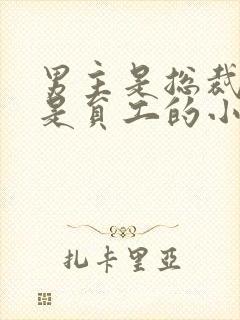 男主是总裁
是员工的小
扎卡里亞